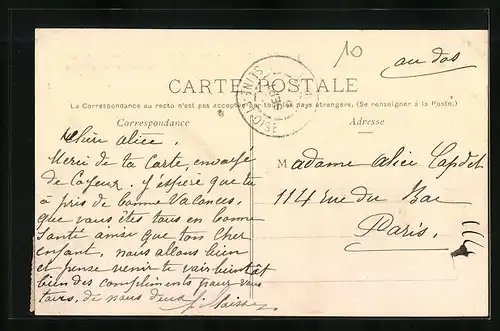 10
au dos
CARTE POSTALE
La Correspondance au recto n'est pas acceptée par pays étrangers. (Se renseigner à la Poste.)
Correspondance
Adresse
SEINE OISE
Chère alice.
Merci de ta Carte, envoyée
de Cayeux. J'espère que tu
à pris de bonne Vacances,
que vous êtes tous en bonne
Santé ainsi que ton Cher
enfant, nous allons bien
et pense venir te voir bientôt
bien des compliments pour vous
tous, de nous deux
Madame Alice
114 rue du Bac
Paris.